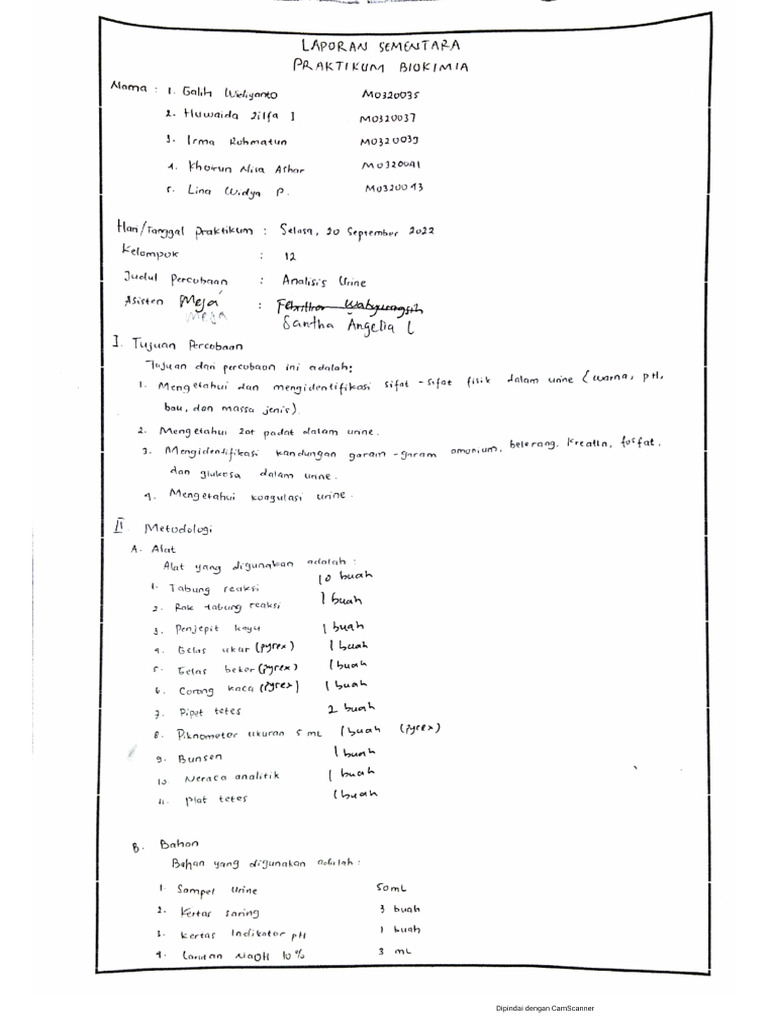 LAPORAN SEMENTARA
PRAKTIKUM BIOKIMIA
Nama : 1. Galih Widiyanto M0320035
2. Huwaida Zilfa I M0320037
3. Irma Rohmatun M0320039
4. Khoirun Nisa Ashar M0320041
5. Lina Widya P. M0320043
Hari/Tanggal Praktikum : Selasa, 20 September 2022
Kelompok : 12
Judul Percobaan : Analisis Urine
Asisten Meja :
Meja
Santha Angelia L
I. Tujuan Percobaan
Tujuan dari percobaan ini adalah:
1. Mengetahui dan mengidentifikasi sifat - sifat fisik dalam urine (warna, pH,
bau, dan massa jenis).
2. Mengetahui zat padat dalam urine.
3. Mengidentifikasi kandungan garam - garam amonium, belerang, kreatin, fosfat,
dan glukosa dalam urine.
4. Mengetahui koagulasi urine.
II. Metodologi
A. Alat
Alat yang digunakan adalah :
1. Tabung reaksi 10 buah
2. Rak tabung reaksi 1 buah
3. Penjepit kayu 1 buah
4. Gelas ukur (pyrex) 1 buah
5. Gelas beker (pyrex) 1 buah
6. Corong kaca (Pyrex) 1 buah
7. Pipet tetes 2 buah
8. Piknometer ukuran 5 mL 1 buah (Pyrex)
9. Bunsen 1 buah
10. Neraca analitik 1 buah
11. Plat tetes 1 buah
B. Bahan
Bahan yang digunakan adalah :
1. Sampel Urine 50 mL
2. Kertas saring 3 buah
3. Kertas Indikator pH 1 buah
4. Larutan NaOH 10% 3 mL
Dipindai dengan CamScanner